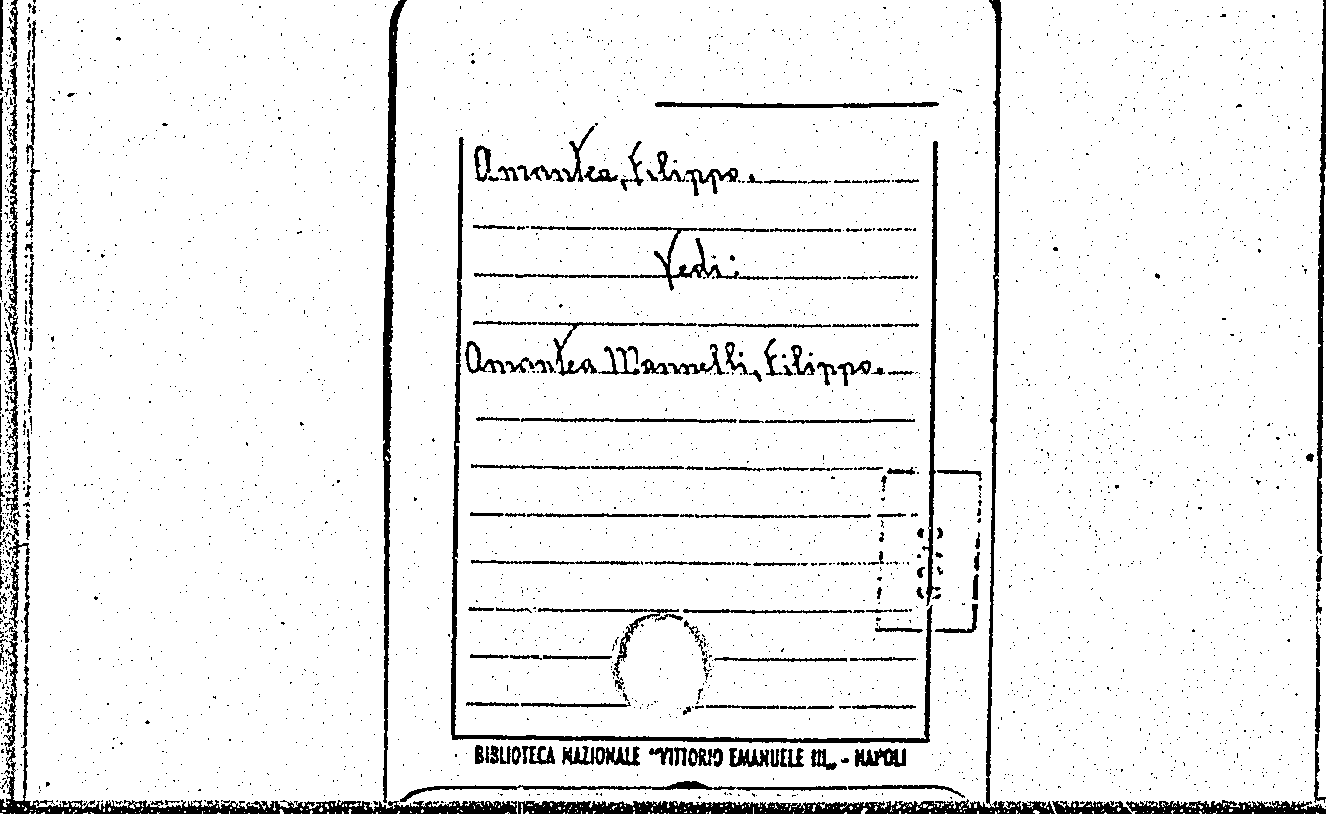 Amantea, Filippo.
Vedi:
Amantea Mannelli, Filippo.
BIBLIOTECA NAZIONALE "VITTORIO EMANUELE III„ - NAPOLI